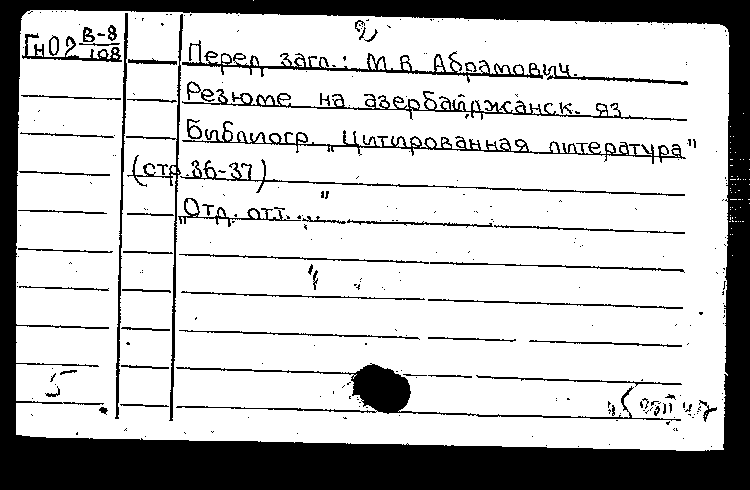 2
Гн02 В-8/108
Перед загл.: М.В. Абрамович.
Резюме на азербайджанск. яз.
Библиогр. „Цитированная литература"
(стр. 36-37)
„Отд. отт. ..."
5